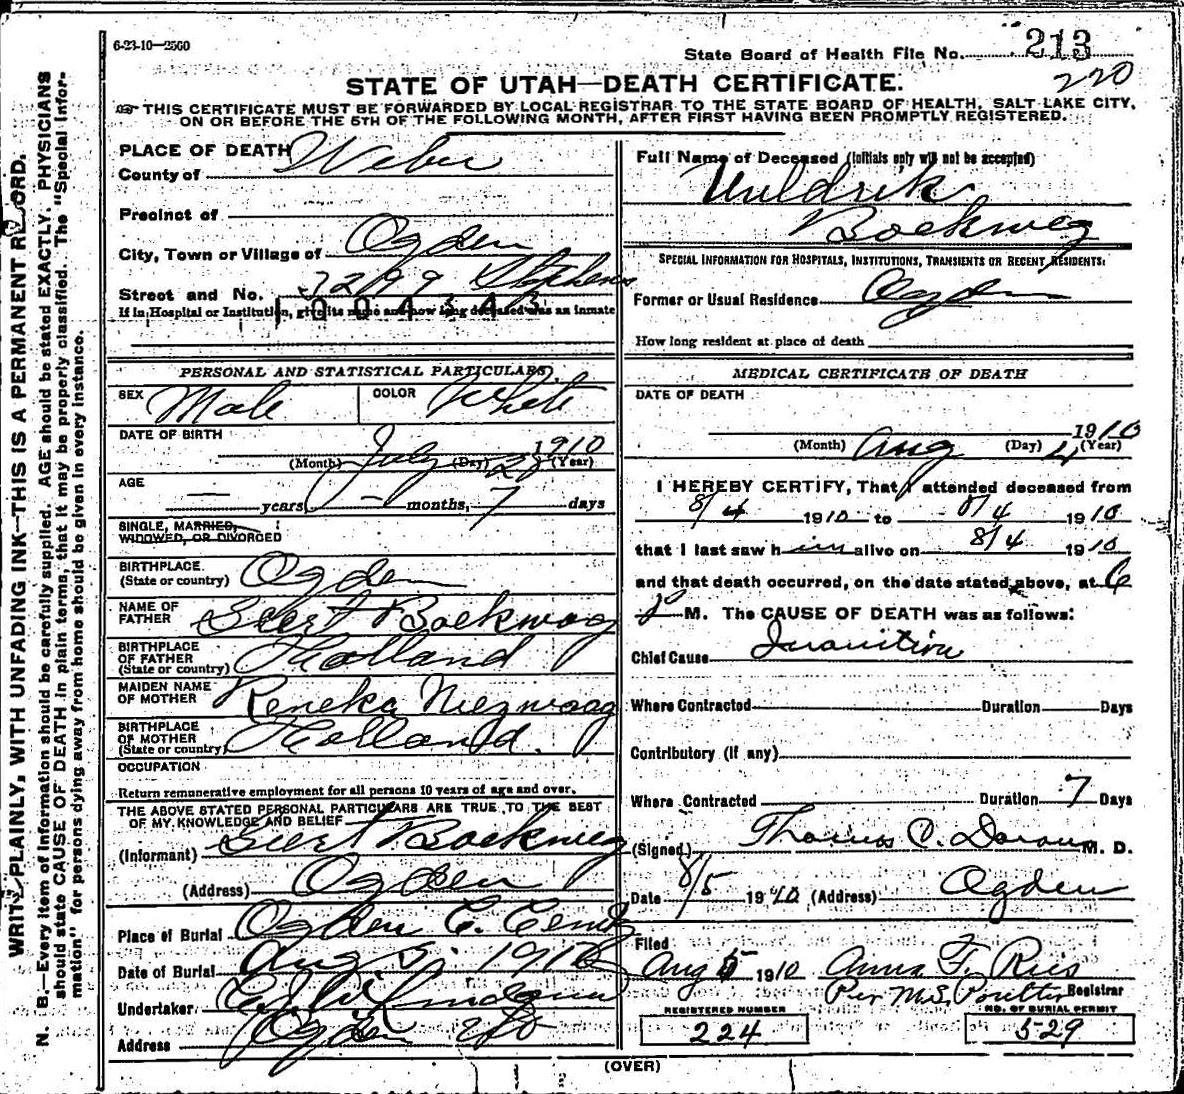 6-23-10—2500
State Board of Health File No. 213
220
STATE OF UTAH—DEATH CERTIFICATE.
THIS CERTIFICATE MUST BE FORWARDED BY LOCAL REGISTRAR TO THE STATE BOARD OF HEALTH, SALT LAKE CITY,
ON OR BEFORE THE 5TH OF THE FOLLOWING MONTH, AFTER FIRST HAVING BEEN PROMPTLY REGISTERED.
WRITE PLAINLY, WITH UNFADING INK—THIS IS A PERMANENT RECORD.
N. B.—Every item of information should be carefully supplied. AGE should be stated EXACTLY. PHYSICIANS
should state CAUSE OF DEATH in plain terms, that it may be properly classified. The "Special Infor-
mation" for persons dying away from home should be given in every instance.
PLACE OF DEATH
County of Weber
Precinct of
City, Town or Village of Ogden
Street and No. Stephens
1004343
If in Hospital or Institution, give its name and how long deceased was an inmate
PERSONAL AND STATISTICAL PARTICULARS
SEX Male COLOR White
DATE OF BIRTH
July 28 1910
(Month) (Day) (Year)
AGE
— years, — months, 7 days
SINGLE, MARRIED,
WIDOWED, OR DIVORCED
BIRTHPLACE
(State or country) Ogden
NAME OF
FATHER Geert Boekweg
BIRTHPLACE
OF FATHER
(State or country) Holland
MAIDEN NAME
OF MOTHER
BIRTHPLACE
OF MOTHER
(State or country) Holland.
OCCUPATION
Return remunerative employment for all persons 10 years of age and over.
THE ABOVE STATED PERSONAL PARTICULARS ARE TRUE TO THE BEST
OF MY KNOWLEDGE AND BELIEF
(Informant) Geert Boekweg
(Address) Ogden
Place of Burial Ogden C. Cemt
Date of Burial Aug 5. 1910
Undertaker
Address Ogden
Full Name of Deceased (Initials only will not be accepted)
Uuldrik
Boekweg
SPECIAL INFORMATION FOR HOSPITALS, INSTITUTIONS, TRANSIENTS OR RECENT RESIDENTS:
Former or Usual Residence Ogden
How long resident at place of death
MEDICAL CERTIFICATE OF DEATH
DATE OF DEATH
1910
(Month) Aug (Day) 4 (Year)
I HEREBY CERTIFY, That I attended deceased from
8/4 1910 to 8/4 1910
that I last saw him alive on 8/4 1910
and that death occurred, on the date stated above, at 6
P M. The CAUSE OF DEATH was as follows:
Chief Cause Inanition
Where Contracted Duration Days
Contributory (if any)
Where Contracted Duration 7 Days
(Signed) Thomas C. M. D.
Date 8/5 1910 (Address) Ogden
Filed
Aug 5 1910 Anna F. Ries
Per M.S. Poulter Registrar
REGISTERED NUMBER
224
NO. OF BURIAL PERMIT
529
(OVER)